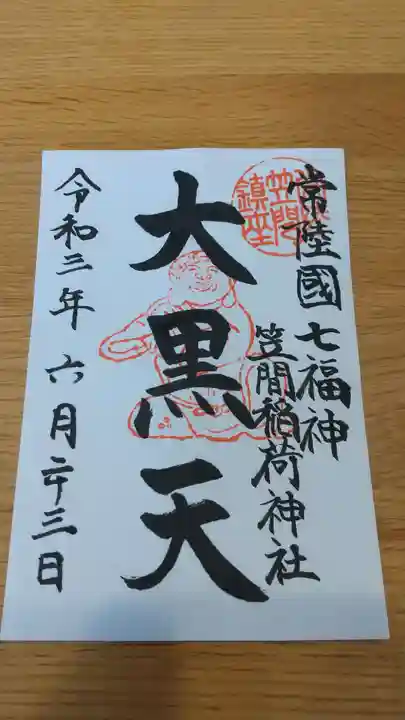 常陸國七福神
笠間稲荷神社
大黒天
令和三年六月二十三日
笠間
鎮座